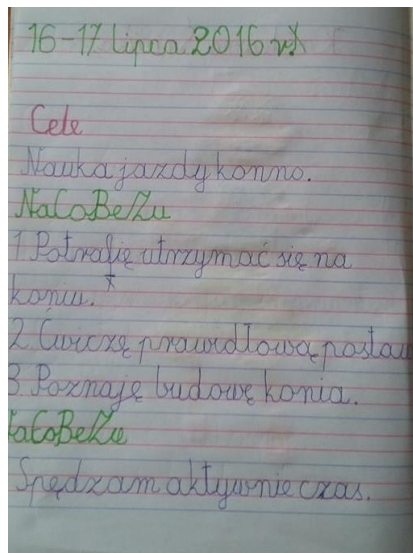 16-17 lipca 2016 r.
Cele
Nauka jazdy konno.
NaCoBeZu
1 Potrafię utrzymać się na
koniu.
2. Ćwiczę prawidłową postaw
3. Poznaję budowę konia.
NaCoBeZu
Spędzam aktywnie czas.